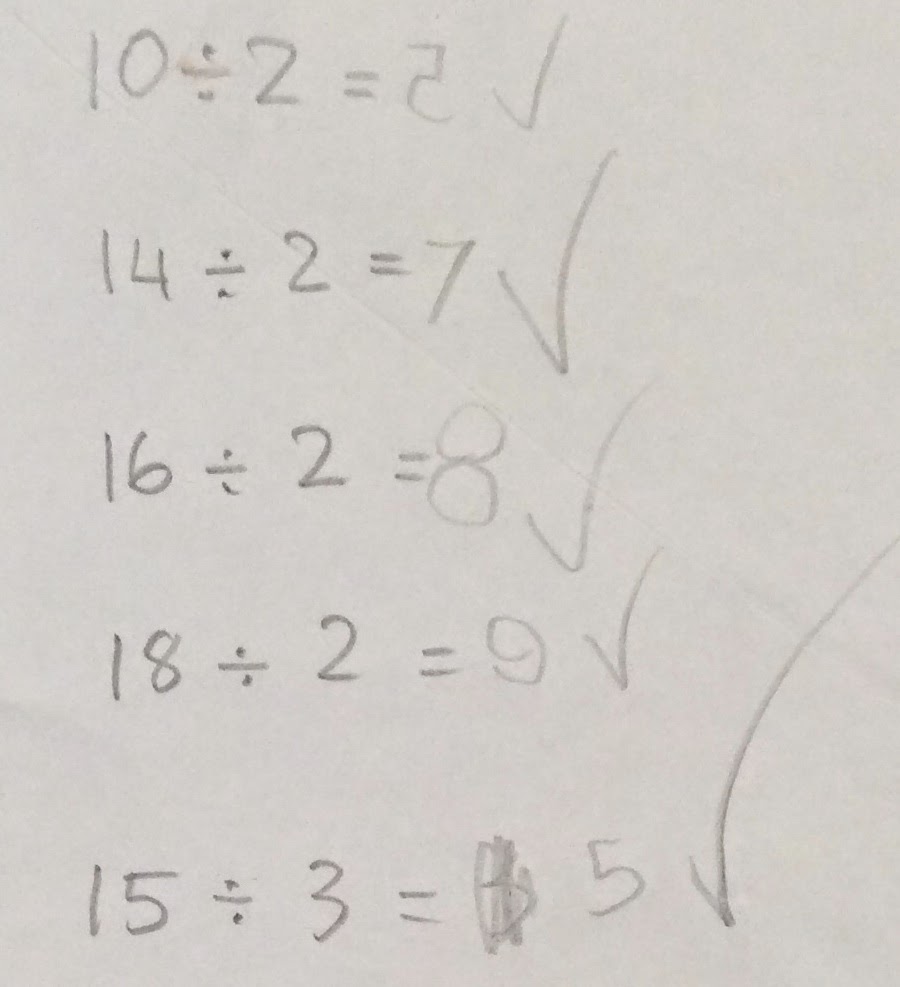 10 ÷ 2 = 5 ✓
14 ÷ 2 = 7 ✓
16 ÷ 2 = 8 ✓
18 ÷ 2 = 9 ✓
15 ÷ 3 = 5 ✓